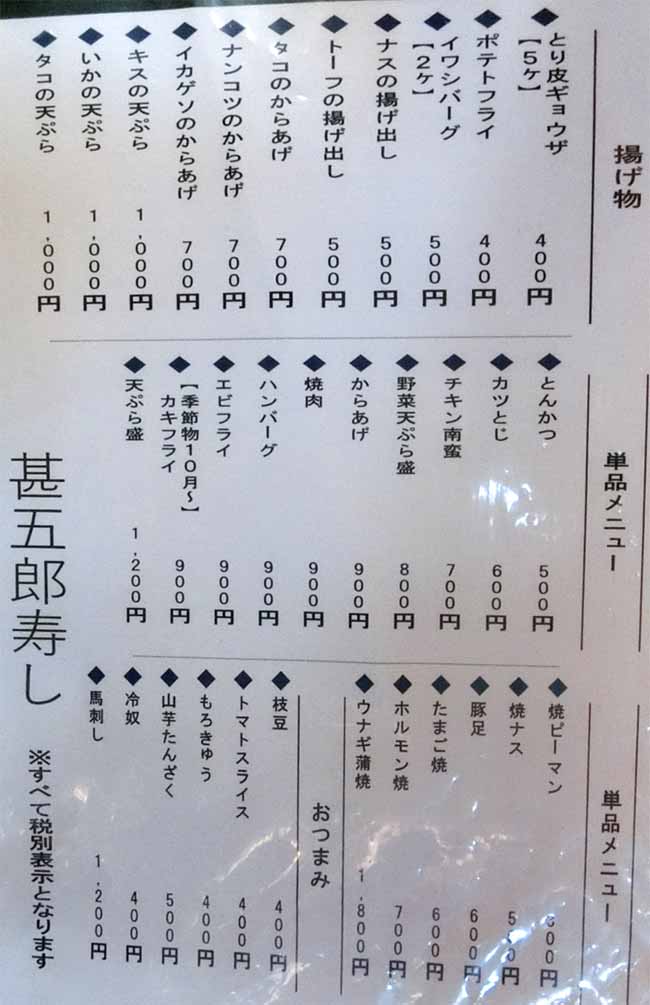 揚げ物
◆とり皮ギョウザ
【5ヶ】
400円
◆ポテトフライ
400円
◆イワシバーグ
【2ヶ】
500円
◆ナスの揚げ出し
500円
◆トーフの揚げ出し
500円
◆タコのからあげ
700円
◆ナンコツのからあげ
700円
◆イカゲソのからあげ
700円
◆キスの天ぷら
1,000円
◆いかの天ぷら
1,000円
◆タコの天ぷら
1,000円
単品メニュー
◆とんかつ
500円
◆カツとじ
600円
◆チキン南蛮
700円
◆野菜天ぷら盛
800円
◆からあげ
900円
◆焼肉
900円
◆ハンバーグ
900円
◆エビフライ
900円
◆【季節物10月~】
カキフライ
900円
◆天ぷら盛
1,200円
単品メニュー
◆焼ピーマン
00円
◆焼ナス
500円
◆豚足
600円
◆たまご焼
600円
◆ホルモン焼
700円
◆ウナギ蒲焼
1,800円
おつまみ
◆枝豆
400円
◆トマトスライス
400円
◆もろきゅう
400円
◆山芋たんざく
500円
◆冷奴
400円
◆馬刺し
1,200円
甚五郎寿し
※すべて税別表示となります